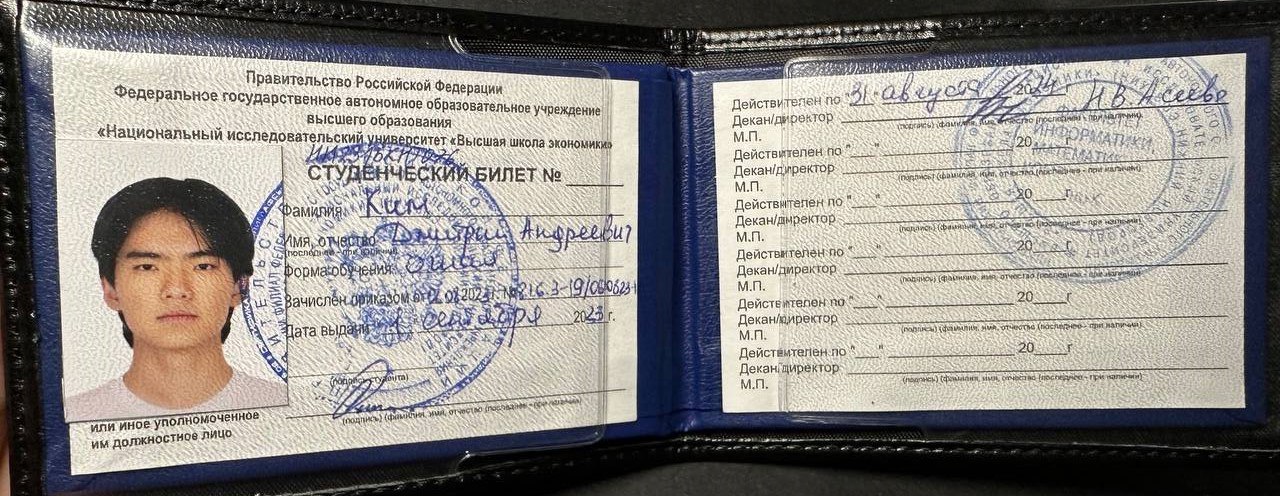 Правительство Российской Федерации
Федеральное государственное автономное образовательное учреждение
высшего образования
«Национальный исследовательский университет «Высшая школа экономики»
СТУДЕНЧЕСКИЙ БИЛЕТ №
Фамилия Ким
Имя, отчество Дмитрий Андреевич
(последнее - при наличии)
Форма обучения очная
Зачислен приказом от 2023г. №
Дата выдачи 1 сентября 2023 г.
(подпись студента)
(подпись) (фамилия, имя, отчество (последнее - при наличии)
или иное уполномоченное
им должностное лицо
Действителен по "31" августа 2024 г
Декан/директор
(подпись) (фамилия, имя, отчество (последнее - при наличии)
М.П.
Действителен по "___" 20___г
Декан/директор
(подпись) (фамилия, имя, отчество (последнее - при наличии)
М.П.
Действителен по "___" 20___г
Декан/директор
(подпись) (фамилия, имя, отчество (последнее - при наличии)
М.П.
Действителен по "___" 20___г
Декан/директор
(подпись) (фамилия, имя, отчество (последнее - при наличии)
М.П.
Действителен по "___" 20___г
Декан/директор
(подпись) (фамилия, имя, отчество (последнее - при наличии)
М.П.
Действителен по "___" 20___г
Декан/директор
(подпись) (фамилия, имя, отчество (последнее - при наличии)
М.П.
ИНФОРМАТИКИ,